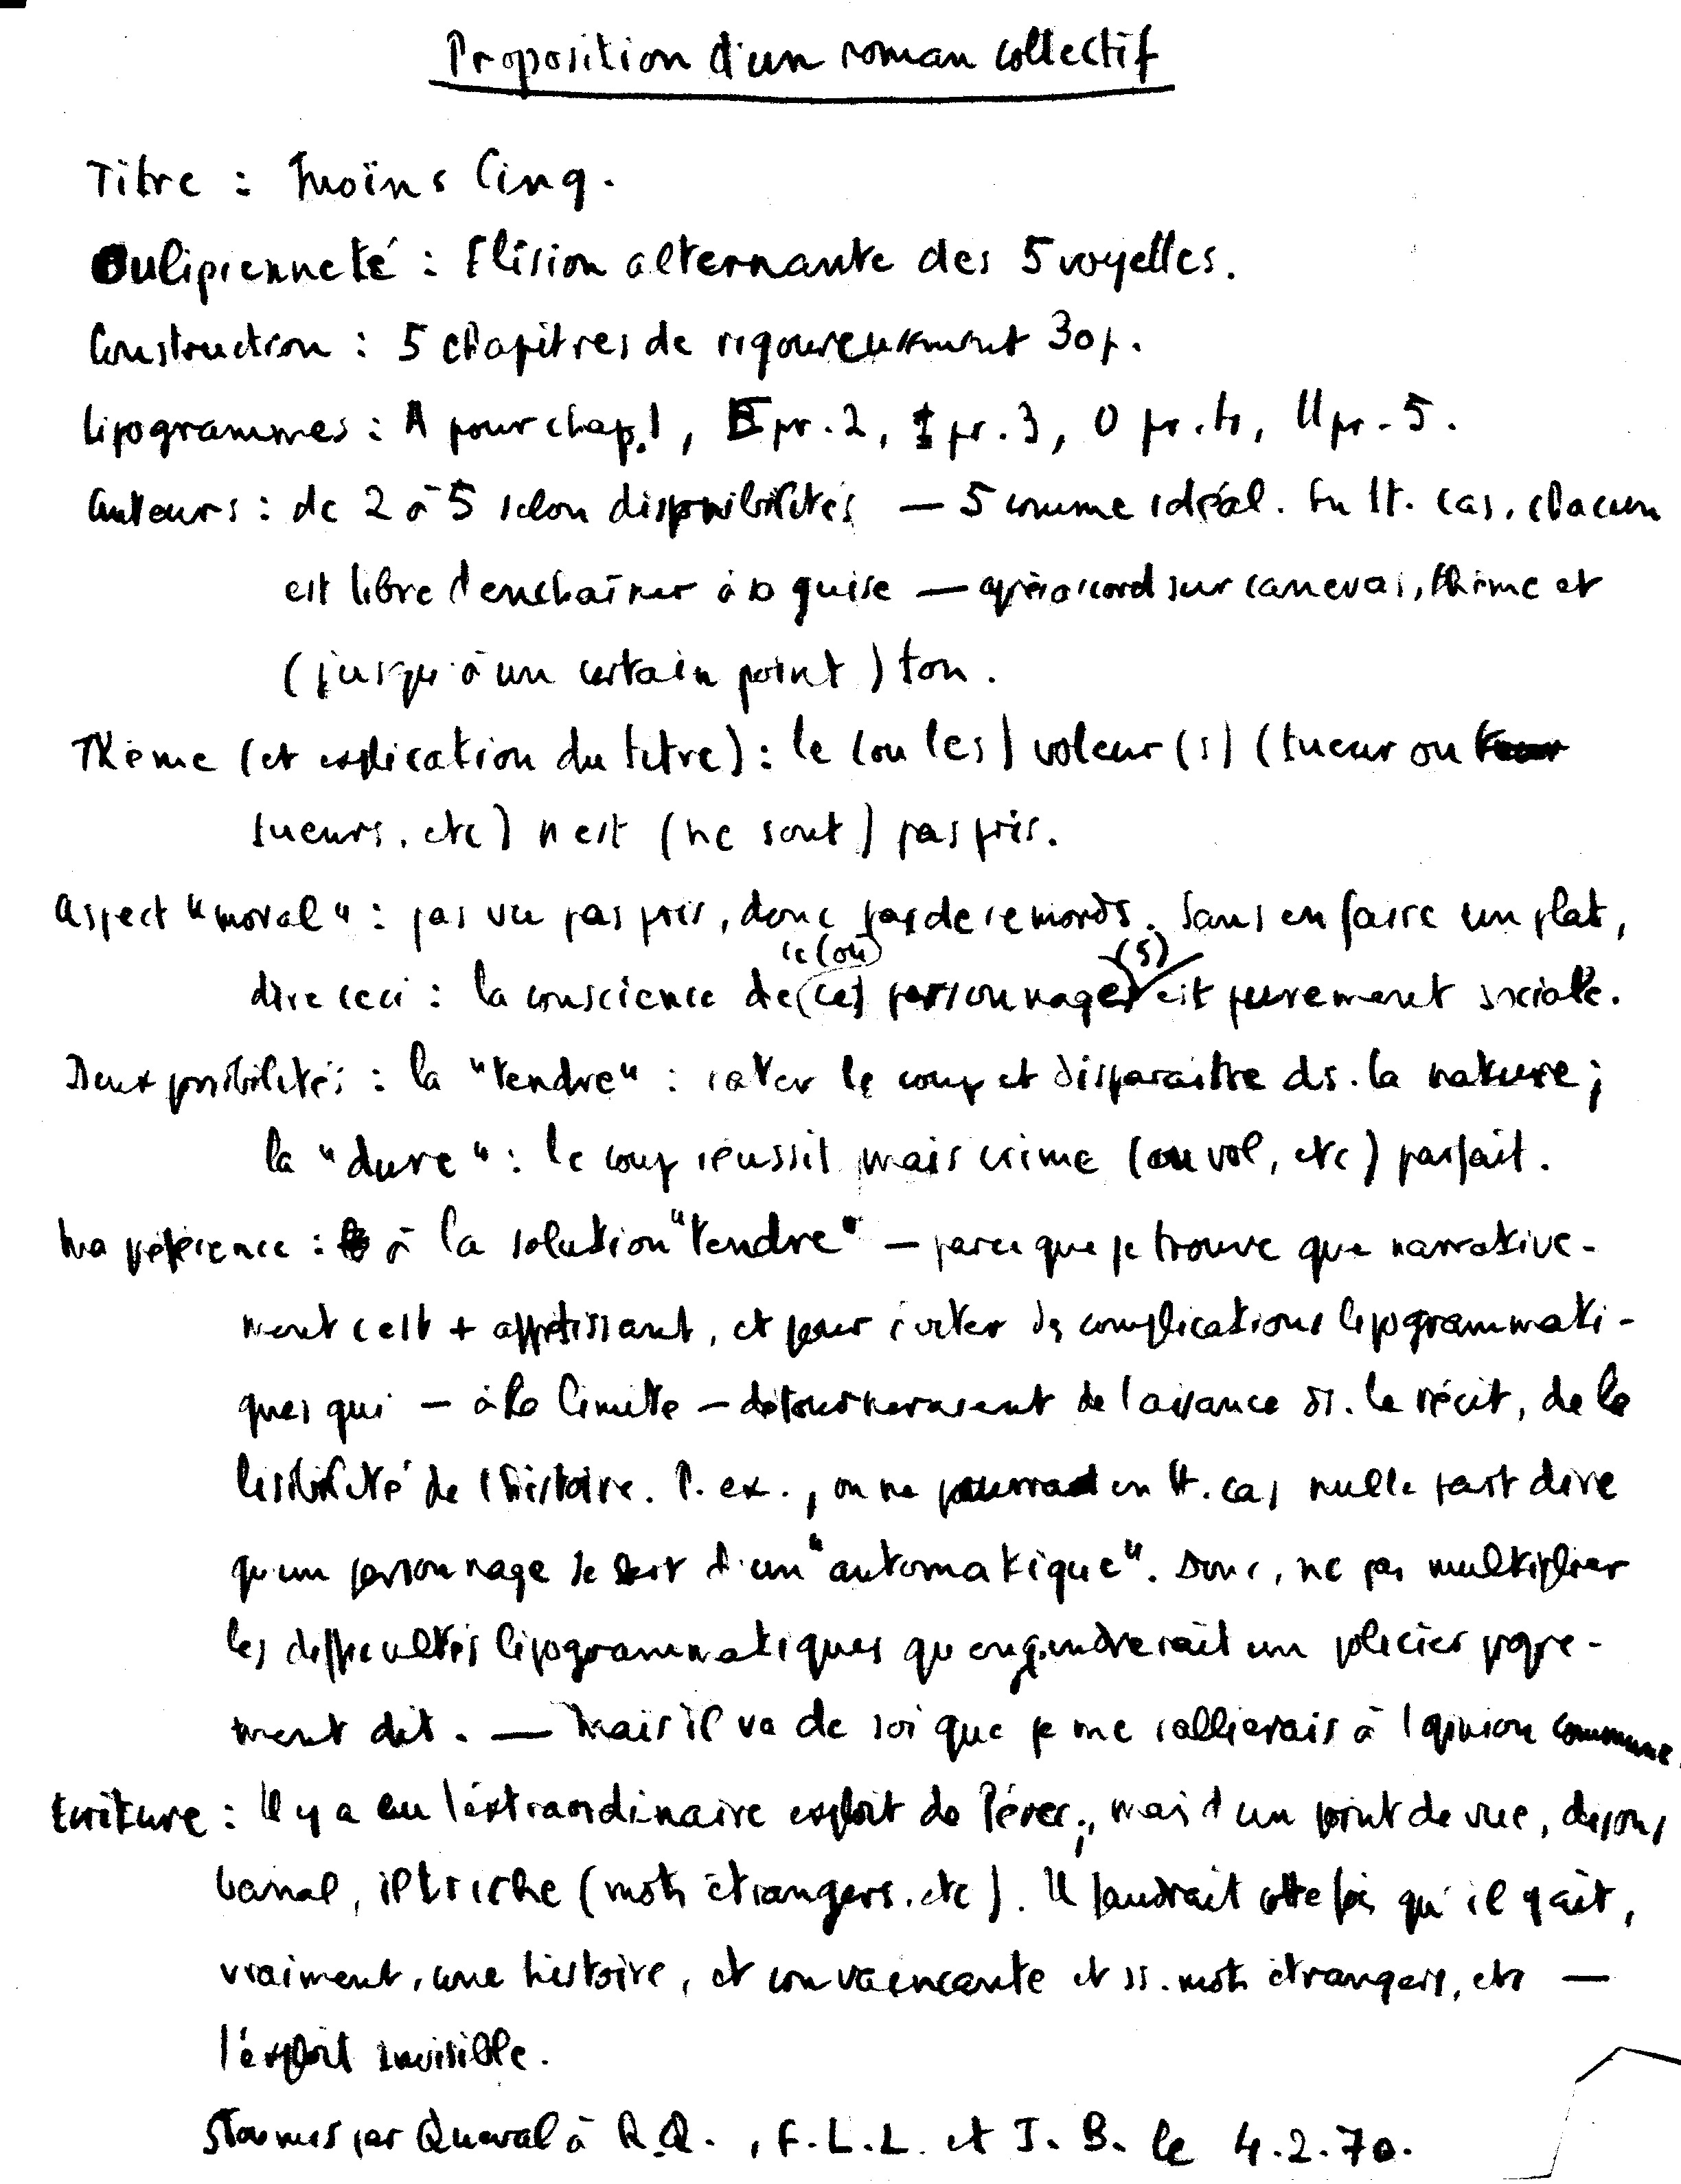 Proposition d'un roman collectif
Titre : Moins Cinq.
Oulipienneté : Elision alternante des 5 voyelles.
Construction : 5 chapitres de rigoureusement 30 p.
Lipogrammes : A pour chap. 1, E pr. 2, I pr. 3, O pr. 4, U pr. 5.
Auteurs : de 2 à 5 selon disponibilités — 5 comme idéal. En tt. cas, chacun
est libre d'enchaîner à sa guise — après accord sur canevas, thème et
(jusqu'à un certain point) ton.
Thème (et explication du titre) : le (ou les) voleur(s) (tueur ou
tueurs, etc) n'est (ne sont) pas pris.
Aspect "moral" : pas vu pas pris, donc pas de remords. Sans en faire un plat,
dire ceci : la conscience de ce (ou ces) personnage(s) est purement sociale.
Deux possibilités : la "tendre" : rater le coup et disparaître ds. la nature ;
la "dure" : le coup réussit mais crime (ou vol, etc) parfait.
Ma préférence : à la solution "tendre" — parce que je trouve que narrative-
ment c'est + appétissant, et pour éviter des complications lipogrammati-
ques qui — à la limite — détourneraient de l'aisance ds. le récit, de la
lisibilité de l'histoire. P. ex., on ne pourra en tt. cas nulle part dire
qu'un personnage se sert d'un "automatique". Donc, ne pas multiplier
les difficultés lipogrammatiques qu'engendrerait un policier propre-
ment dit. — Mais il va de soi que je me rallierais à l'opinion commune.
Ecriture : Il y a eu l'extraordinaire exploit de Pérec ; mais d'un point de vue, disons
banal, il triche (mots étrangers, etc). Il faudrait cette fois qu'il y ait,
vraiment, une histoire, et convaincante et ss. mots étrangers, etc —
l'exploit invisible.
par Queval à R.Q., F.L.L. et J.B. le 4.2.70.